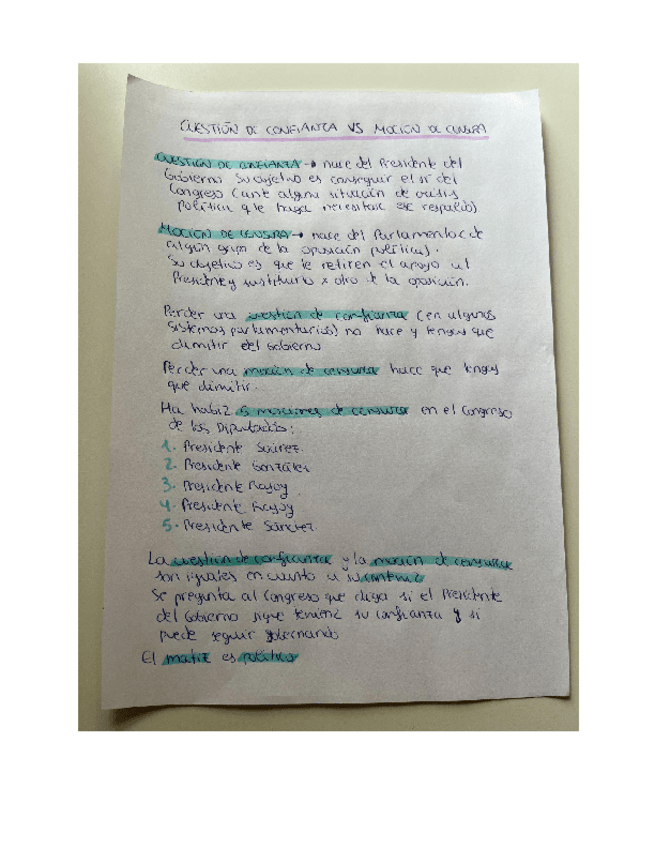 CUESTIÓN DE CONFIANZA VS MOCIÓN DE CENSURA
CUESTIÓN DE CONFIANZA → nace del Presidente del
Gobierno. Su objetivo es conseguir el sí del
Congreso (ante alguna situación de crisis
política q le haga necesitar ese respaldo)
MOCIÓN DE CENSURA → nace del Parlamento (de
algún grupo de la oposición política).
Su objetivo es que le retiren el apoyo al
Presidente y sustituirlo x otro de la oposición.
Perder una cuestión de confianza (en algunos
sistemas parlamentarios) no hace q tengas que
dimitir del Gobierno
Perder una moción de censura hace que tengas
que dimitir.
Ha habido 5 mociones de censura en el Congreso
de los Diputados:
1. Presidente Suárez.
2. Presidente González
3. Presidente Rajoy
4. Presidente Rajoy
5. Presidente Sánchez.
La cuestión de confianza y la moción de censura
son iguales en cuanto a su
Se pregunta al Congreso que diga si el Presidente
del Gobierno sigue teniendo su confianza y si
puede seguir gobernando
El matiz es político